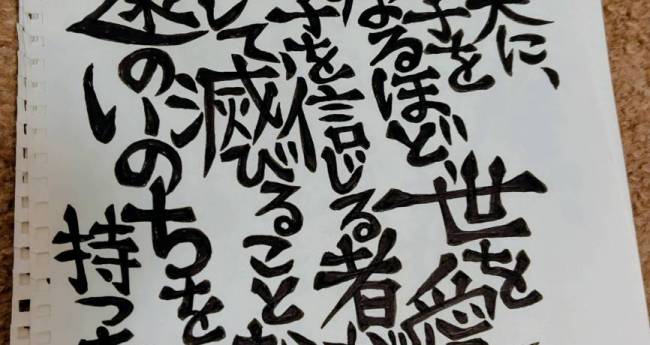 実に、
子を
なるほど世を愛
子を信じる者が
として滅びること
遠のいのちを
持つ